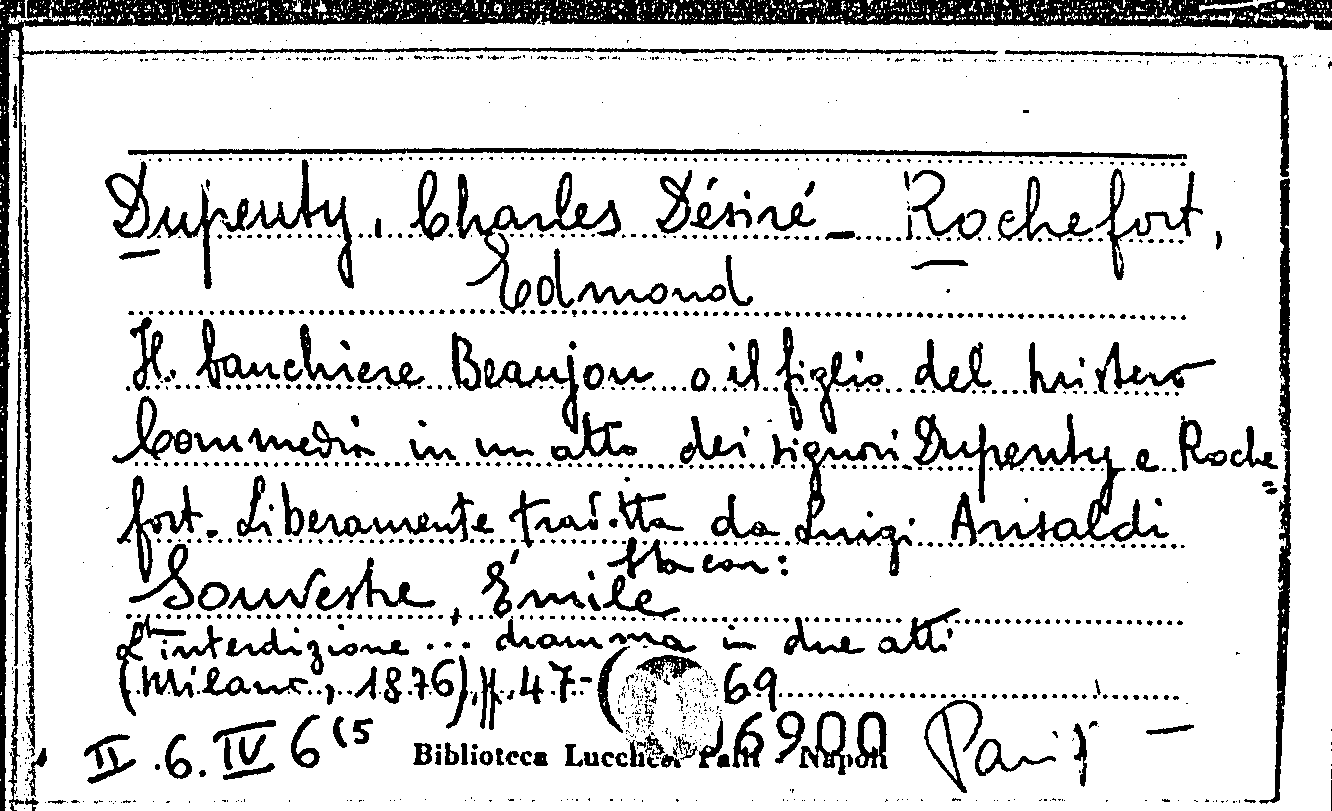 Dupeuty, Charles Désiré - Rochefort,
Edmond
Il banchiere Beaujon o il figlio del mistero
Commedia in un atto dei signori Dupeuty e Roche=
fort. Liberamente tradotta da Luigi Ansaldi
Sta con:
Souvestre, Émile
L'interdizione ... dramma in due atti
(Milano, 1876), pp. 47-69
II.6.IV 6(5
Biblioteca Lucchesi Palli Napoli